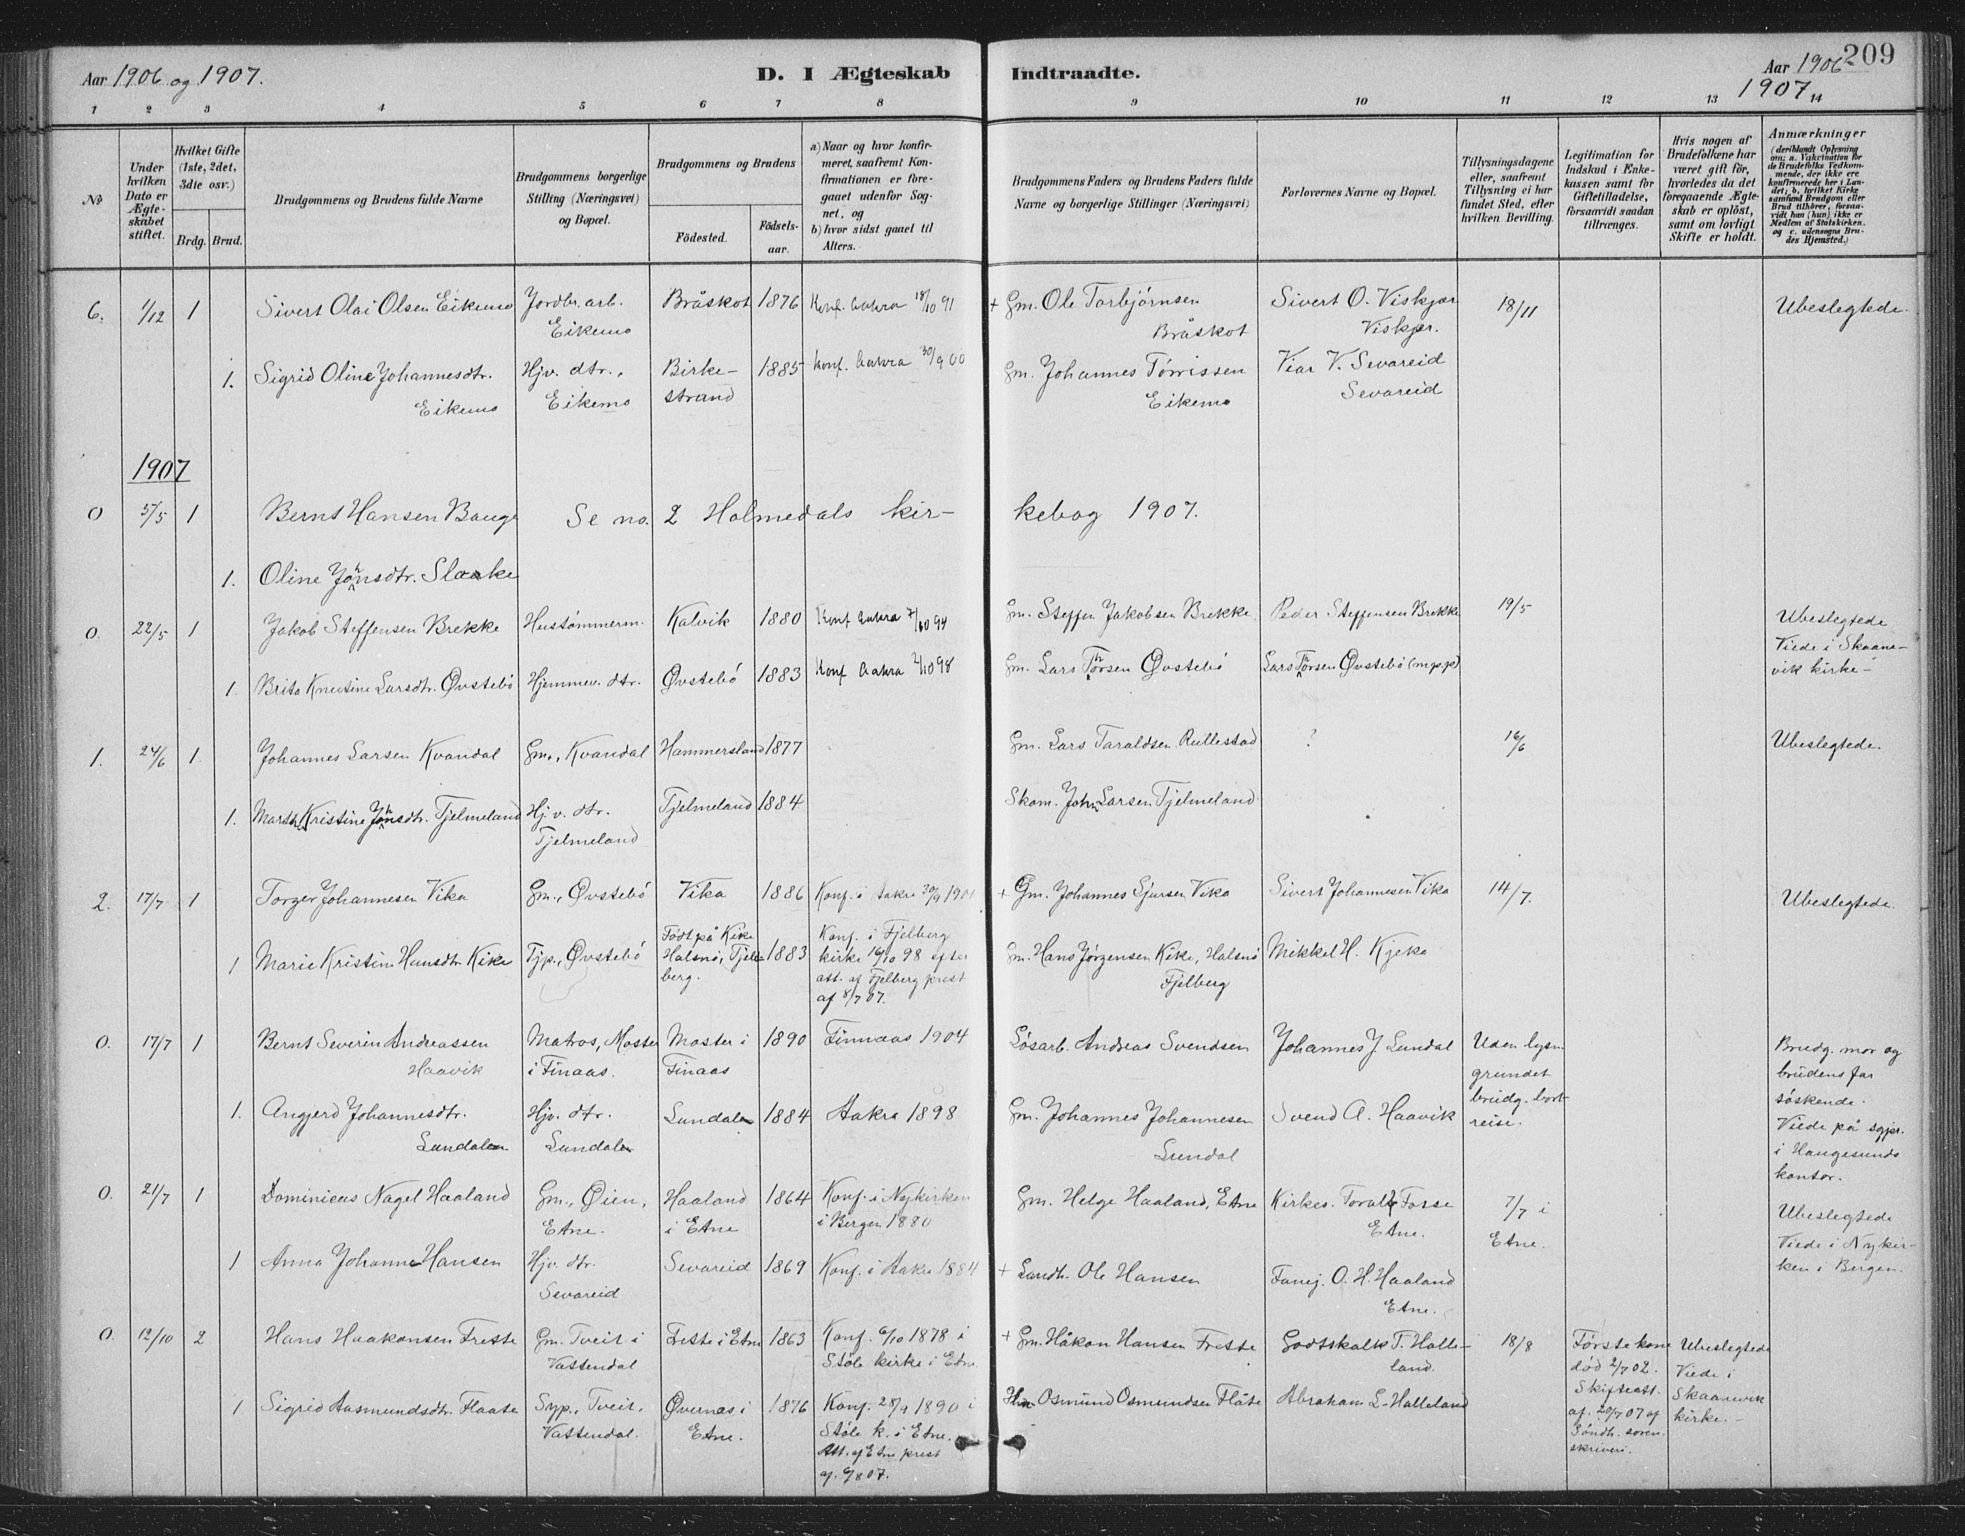 Aar 1906 og 1907.
D. I Ægteskab
Indtraadte.
Aar 1906
209
1907
1 2 3 4 5 6 7 8
9 10 11 12 13 14
No
Under hvilken Dato er Ægteskabet stiftet.
Hvilket Gifte (1ste, 2det, 3die osv.)
Brdg. Brud.
Brudgommens og Brudens fulde Navne
Brudgommens borgerlige Stilling (Næringsvei) og Bopæl.
Brudgommens og Brudens
Födested.
Födselsaar.
a) Naar og hvor konfirmeret, saafremt Konfirmationen er foregaaet udenfor Sognet, og
b) hvor sidst gaaet til Alters.
Brudgommens Faders og Brudens Faders fulde Navne og borgerlige Stillinger (Næringsvei)
Forlovernes Navne og Bopæl.
Tillysningsdagene eller, saafremt Tillysning ei har fundet Sted, efter hvilken Bevilling.
Legitimation for Indskud i Enkekassen samt for Giftetilladelse, forsaavidt saadan tiltrænges.
Hvis nogen af Brudefolkene har været gift för, hvorledes da det foregaaende Ægteskab er oplöst, samt om lovligt Skifte er holdt.
Anmærkninger
(deriblandt Oplysning om: a. Vakcination for de Brudefolks Vedkommende, der ikke ere konfirmerede her i Landet; b. hvilket Kirkesamfund Brudgom eller Brud tilhörer, forsaavidt han (hun) ikke er Medlem af Statskirken, og c. udensogns Brudes Hjemsted.)
6. 1/12 1 Sivert Olai Olsen Eikemo Jordbr. arb. Eikemo Bråskot 1876 Konf. Aakra 18/10 91 + Gm. Ole Torbjørnsen Bråskot Sivert O. Viskjær Viskjær. 18/11 Ubeslegtede.
1. Sigrid Oline Johannesdtr. Eikemo Hjv. dtr., Eikemo Birkestrand 1885 Konf. Aakra 30/9 00 Gm. Johannes Tørrissen Eikemo Viar V. Sevareid Sevareid
1907
0 5/5 1 Bernt Hansen Bauge Se no. 2 Holmedals kirkebog 1907.
1. Oline Johnsdtr. Slaake
0. 22/5 1 Jakob Steffensen Brekke Hustømmerm. Kalvik 1880 Konf Aakra 7/10 94 Gm. Steffen Jakobsen Brekke Peder Steffensen Brekke 19/5 Ubeslegtede Viede i Skaanevik kirke
1. Brita Knutine Larsdtr. Øvstebö Hjemmev. dtr. Øvstebö 1883 Konf Aakra 2/10 98 Gm. Lars Thorsen Øvstebö Lars Thorsen Øvstebö (m.p.p)
1. 24/6 1 Johannes Larsen Kvandal Gm., Kvandal Hammersland 1877 Gm. Lars Taraldsen Rullestad ? 16/6 Ubeslegtede.
1. Martha Kristine Johnsdtr. Tjelmeland Hj. v. dtr. Tjelmeland Tjelmeland 1884 Skom. John Larsen Tjelmeland
2. 17/7 1 Torger Johannesen Vika Gm., Øvstebö Vika 1886 Konf. i Aakra 30/9 1901 + Gm. Johannes Sjursen Vika Sivert Johannesen Vika 14/7. Ubeslegtede.
1 Marie Kristine Hansdtr. Kike Tjp., Øvstebö Født på Kike Halsnö, Fjelberg. 1883 Konf. i Fjelberg kirke 16/10 98 efter att. af Fjelberg prest af 8/7 07. Gm. Hans Jørgensen Kike, Halsnö Fjelberg Mikkel H. Kjeka
0. 17/7 1 Bernt Severin Andreassen Haavik Matros, Moster i Finaas. Moster i Finaas 1890 Finnaas 1904 Løsarb. Andreas Svendsen Johannes J. Lundal Uden lysn. grundet brudg. bortreise. Brudg. mor og brudens far søskende. Viede på sgjpr. i Haugesunds kontor.
1. Angjerd Johannesdtr. Lundalen Hjv. dtr. Lundalen Lundalen 1884 Aakra 1898 Gm. Johannes Johannesen Lundal Svend A. Haavik
0. 21/7 1 Dominicus Nagel Haaland Gm., Øien, Etne. Haaland i Etne 1864 Konf. i Nykirken i Bergen 1880 Gm. Helge Haaland, Etne Kirkes. Toralf Fosse Etne. 7/7 i Etne. Ubeslegtede Viede i Nykirken i Bergen.
1 Anna Johanne Hansen Hjv. dtr. Sevareid Sevareid 1869 Konf. i Aakra 1884 + Landh. Ole Hansen Fanej. O. H. Haaland Etne.
0. 12/10 2 Hans Haakonsen Frette Gm. Tveit i Vattendal Frette i Etne 1863 Konf. 6/10 1878 i Støle kirke i Etne. + Gm. Håkon Hansen Frette Godtskalk T. Halleland. 18/8 Første kone død 2/7 02. Skifteatt. af 20/7 07 af Søndh. sorenskriveri. Ubeslegtede Viede i Skaanevik kirke.
1 Sigrid Aasmundsdtr. Flaate Syp., Tveit, Vattendal. Øvernæs i Etne. 1876 Konf. 28/9 1890 i Støle k. i Etne. Att. af Etne prest af. 9/8 07. Hm Osmund Osmundsen Flåte Abraham L. Halleland